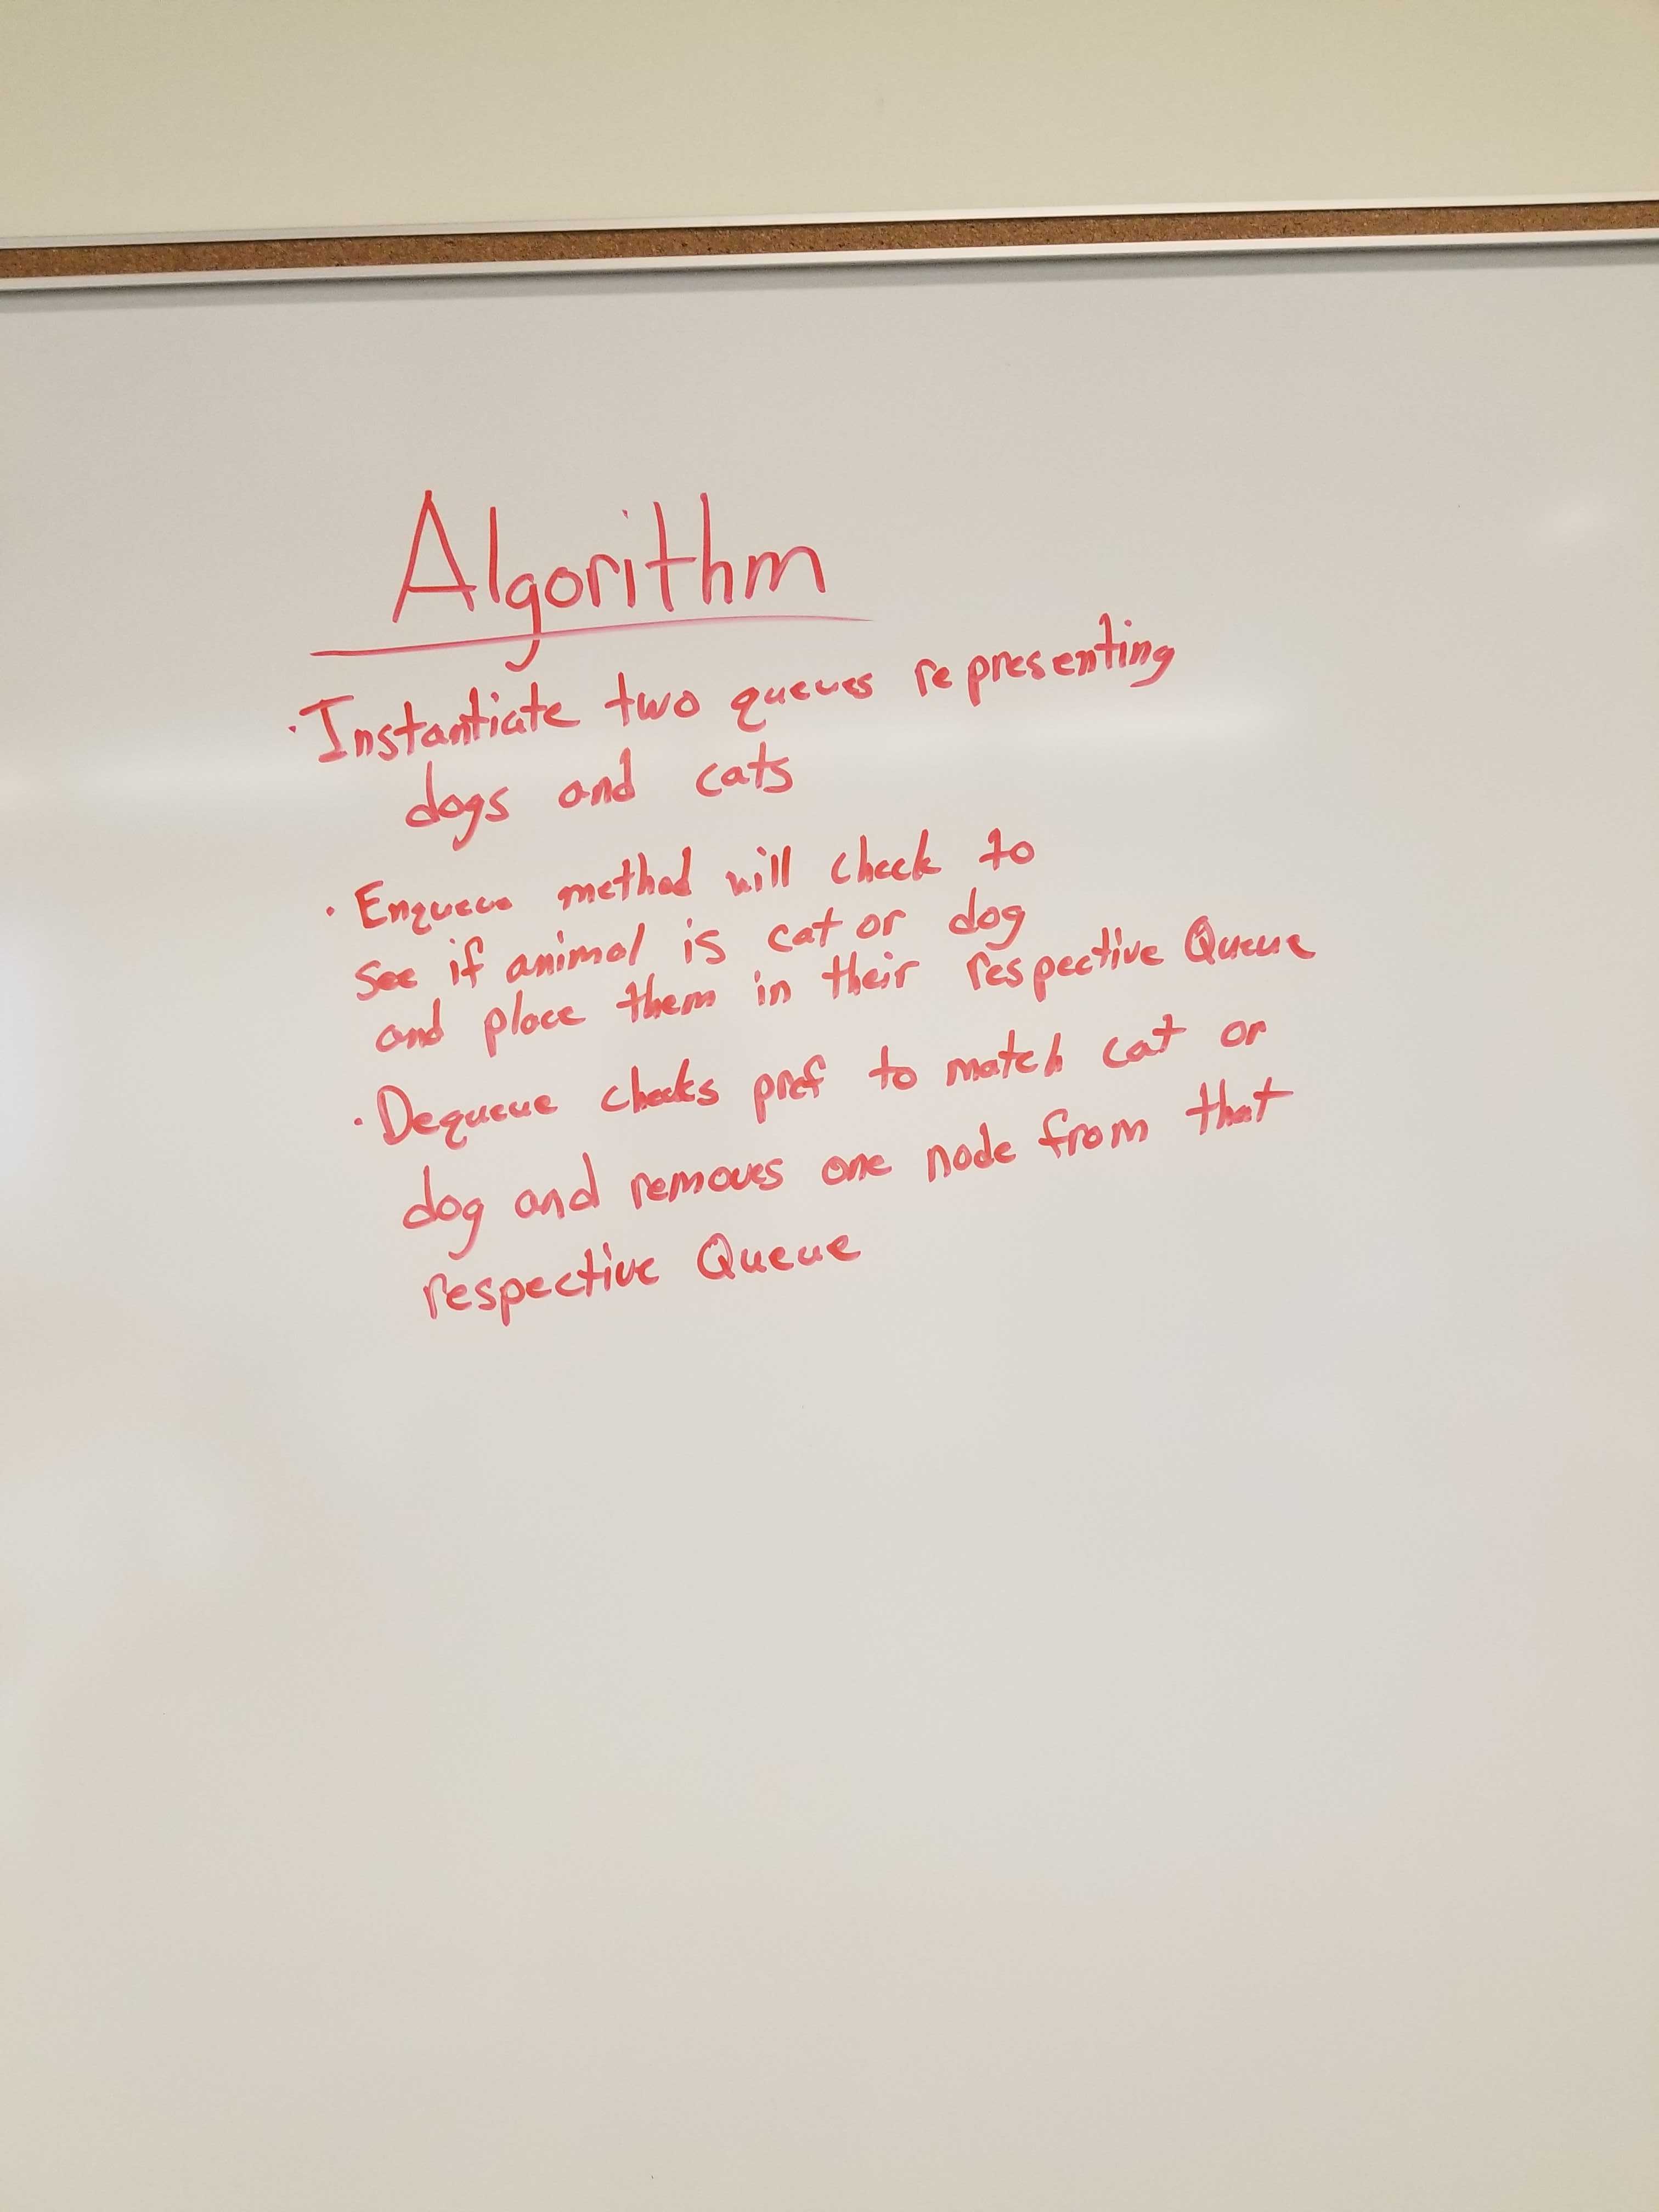 Algorithm
· Instantiate two queues representing
dogs and cats
· Enqueue method will check to
see if animal is cat or dog
and place them in their respective Queue
· Dequeue checks pref to match cat or
dog and removes one node from that
respective Queue